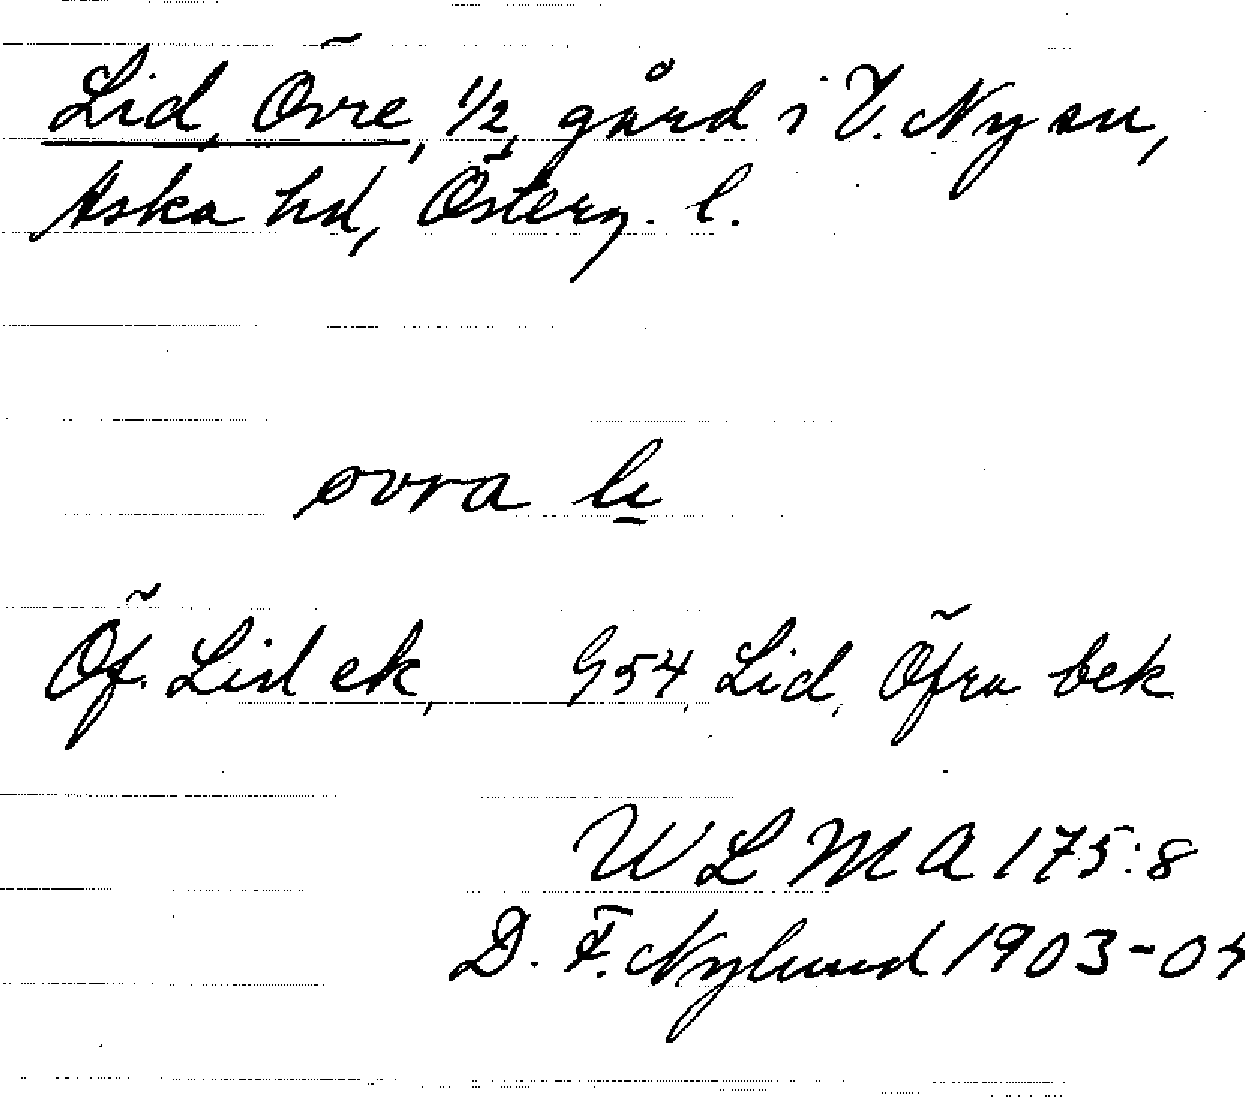 Lid, Övre, 1/2, gård i V. Ny sn,
Aska hd, Österg. l.
øvra li̲
Öf. Lid ek, G54, Lid, Öfra bek
ULMA 175:8
D. F. Nylund 1903-04